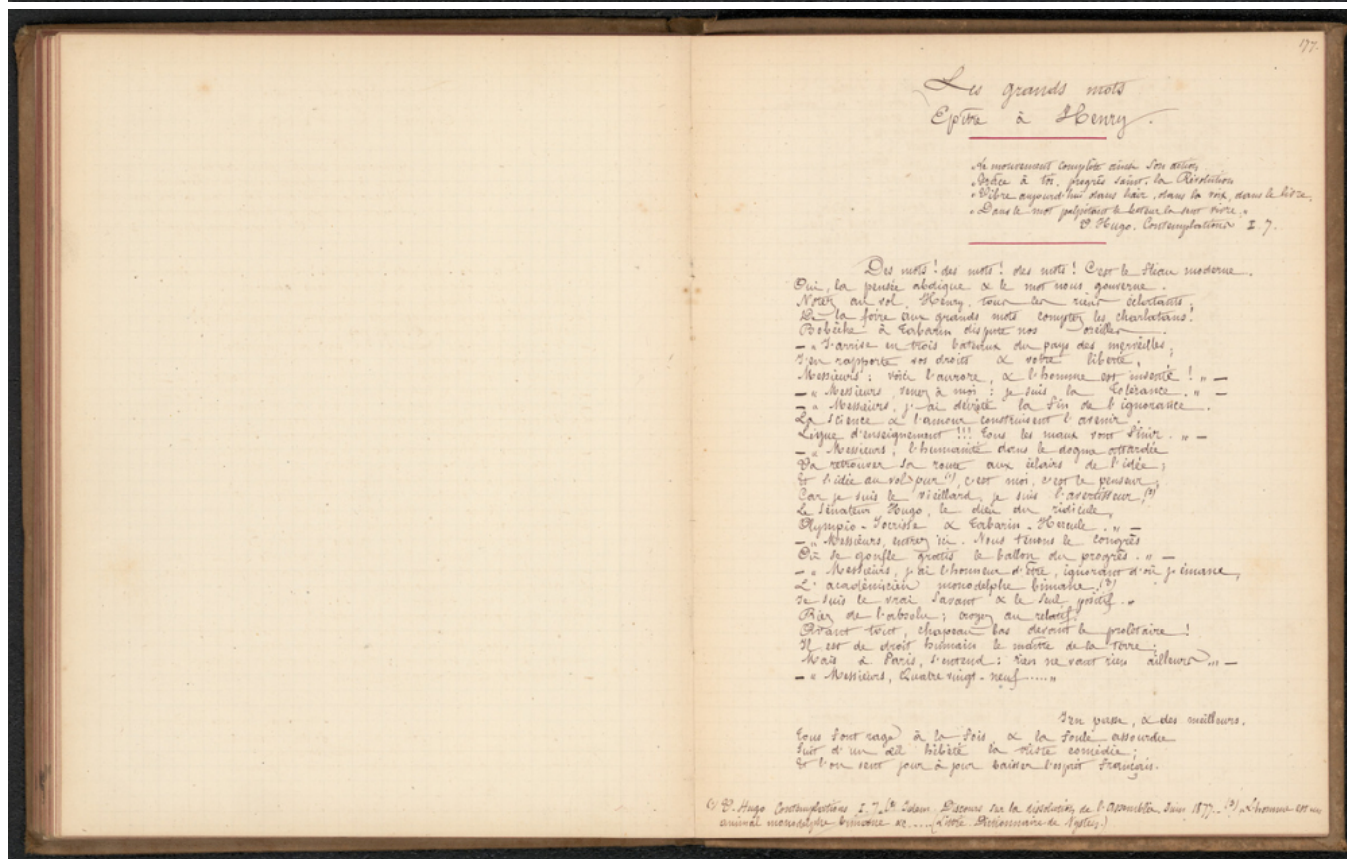 177.
Les grands mots
Epître à Henry.
"Le mouvement complète ainsi son action
"Grâce à toi, progrès saint, la Révolution
"Vibre aujourd'hui dans l'air, dans la voix, dans le livre.
"Dans le mot palpitant le lecteur la sent vivre."
V. Hugo. Contemplations I. 7.
Des mots! des mots! des mots! C'est le fléau moderne.
Oui, la pensée abdique & le mot nous gouverne.
Notez au vol, Henry, tous les riens éclatants;
De la foire aux grands mots comptez les charlatans!
Bobèche à Tabarin dispute nos oreilles.
— "J'arrive en trois bateaux du pays des merveilles;
J'en rapporte vos droits & votre liberté,
Messieurs: voici l'aurore, & l'homme est inventé!" —
— "Messieurs, venez à moi: je suis la Tolérance." —
— "Messieurs, j'ai décrété la fin de l'ignorance.
La Science & l'amour construisent l'avenir.
Ligue d'enseignement!!! Tous les maux vont finir." —
— "Messieurs, l'humanité dans le dogme attardée
Va retrouver sa route aux éclairs de l'idée;
Et l'idée au vol pur (1), c'est moi, c'est le penseur;
Car je suis le vieillard, je suis l'avertisseur, (2)
Le Sénateur Hugo, le dieu du ridicule,
Olympio-Jocrisse & Tabarin-Hercule." —
— "Messieurs, entrez ici. Nous tenons le congrès
Où se gonfle gratis le ballon du progrès." —
— "Messieurs, j'ai l'honneur d'être, ignorant d'où j'émane,
L'académicien monodelphe bimane. (3)
Je suis le vrai Savant & le seul positif.
Riez de l'absolu; croyez au relatif.
Avant tout, chapeau bas devant le prolétaire!
Il est de droit humain le maître de la terre;
Mais à Paris, s'entend: rien ne vaut rien ailleurs..." —
— "Messieurs, Quatre vingt-neuf....."
J'en passe, & des meilleurs.
Tous font rage à la fois, & la foule assourdie
Suit d'un œil hébété la triste comédie;
Et l'on sent jour à jour baisser l'esprit français.
(1) V. Hugo Contemplations I. 7. (2) Idem. Discours sur la dissolution de l'Assemblée. Juin 1877. (3) L'homme est un
animal monodelphe bimane &c..... (Littré. Dictionnaire de Nysten.)